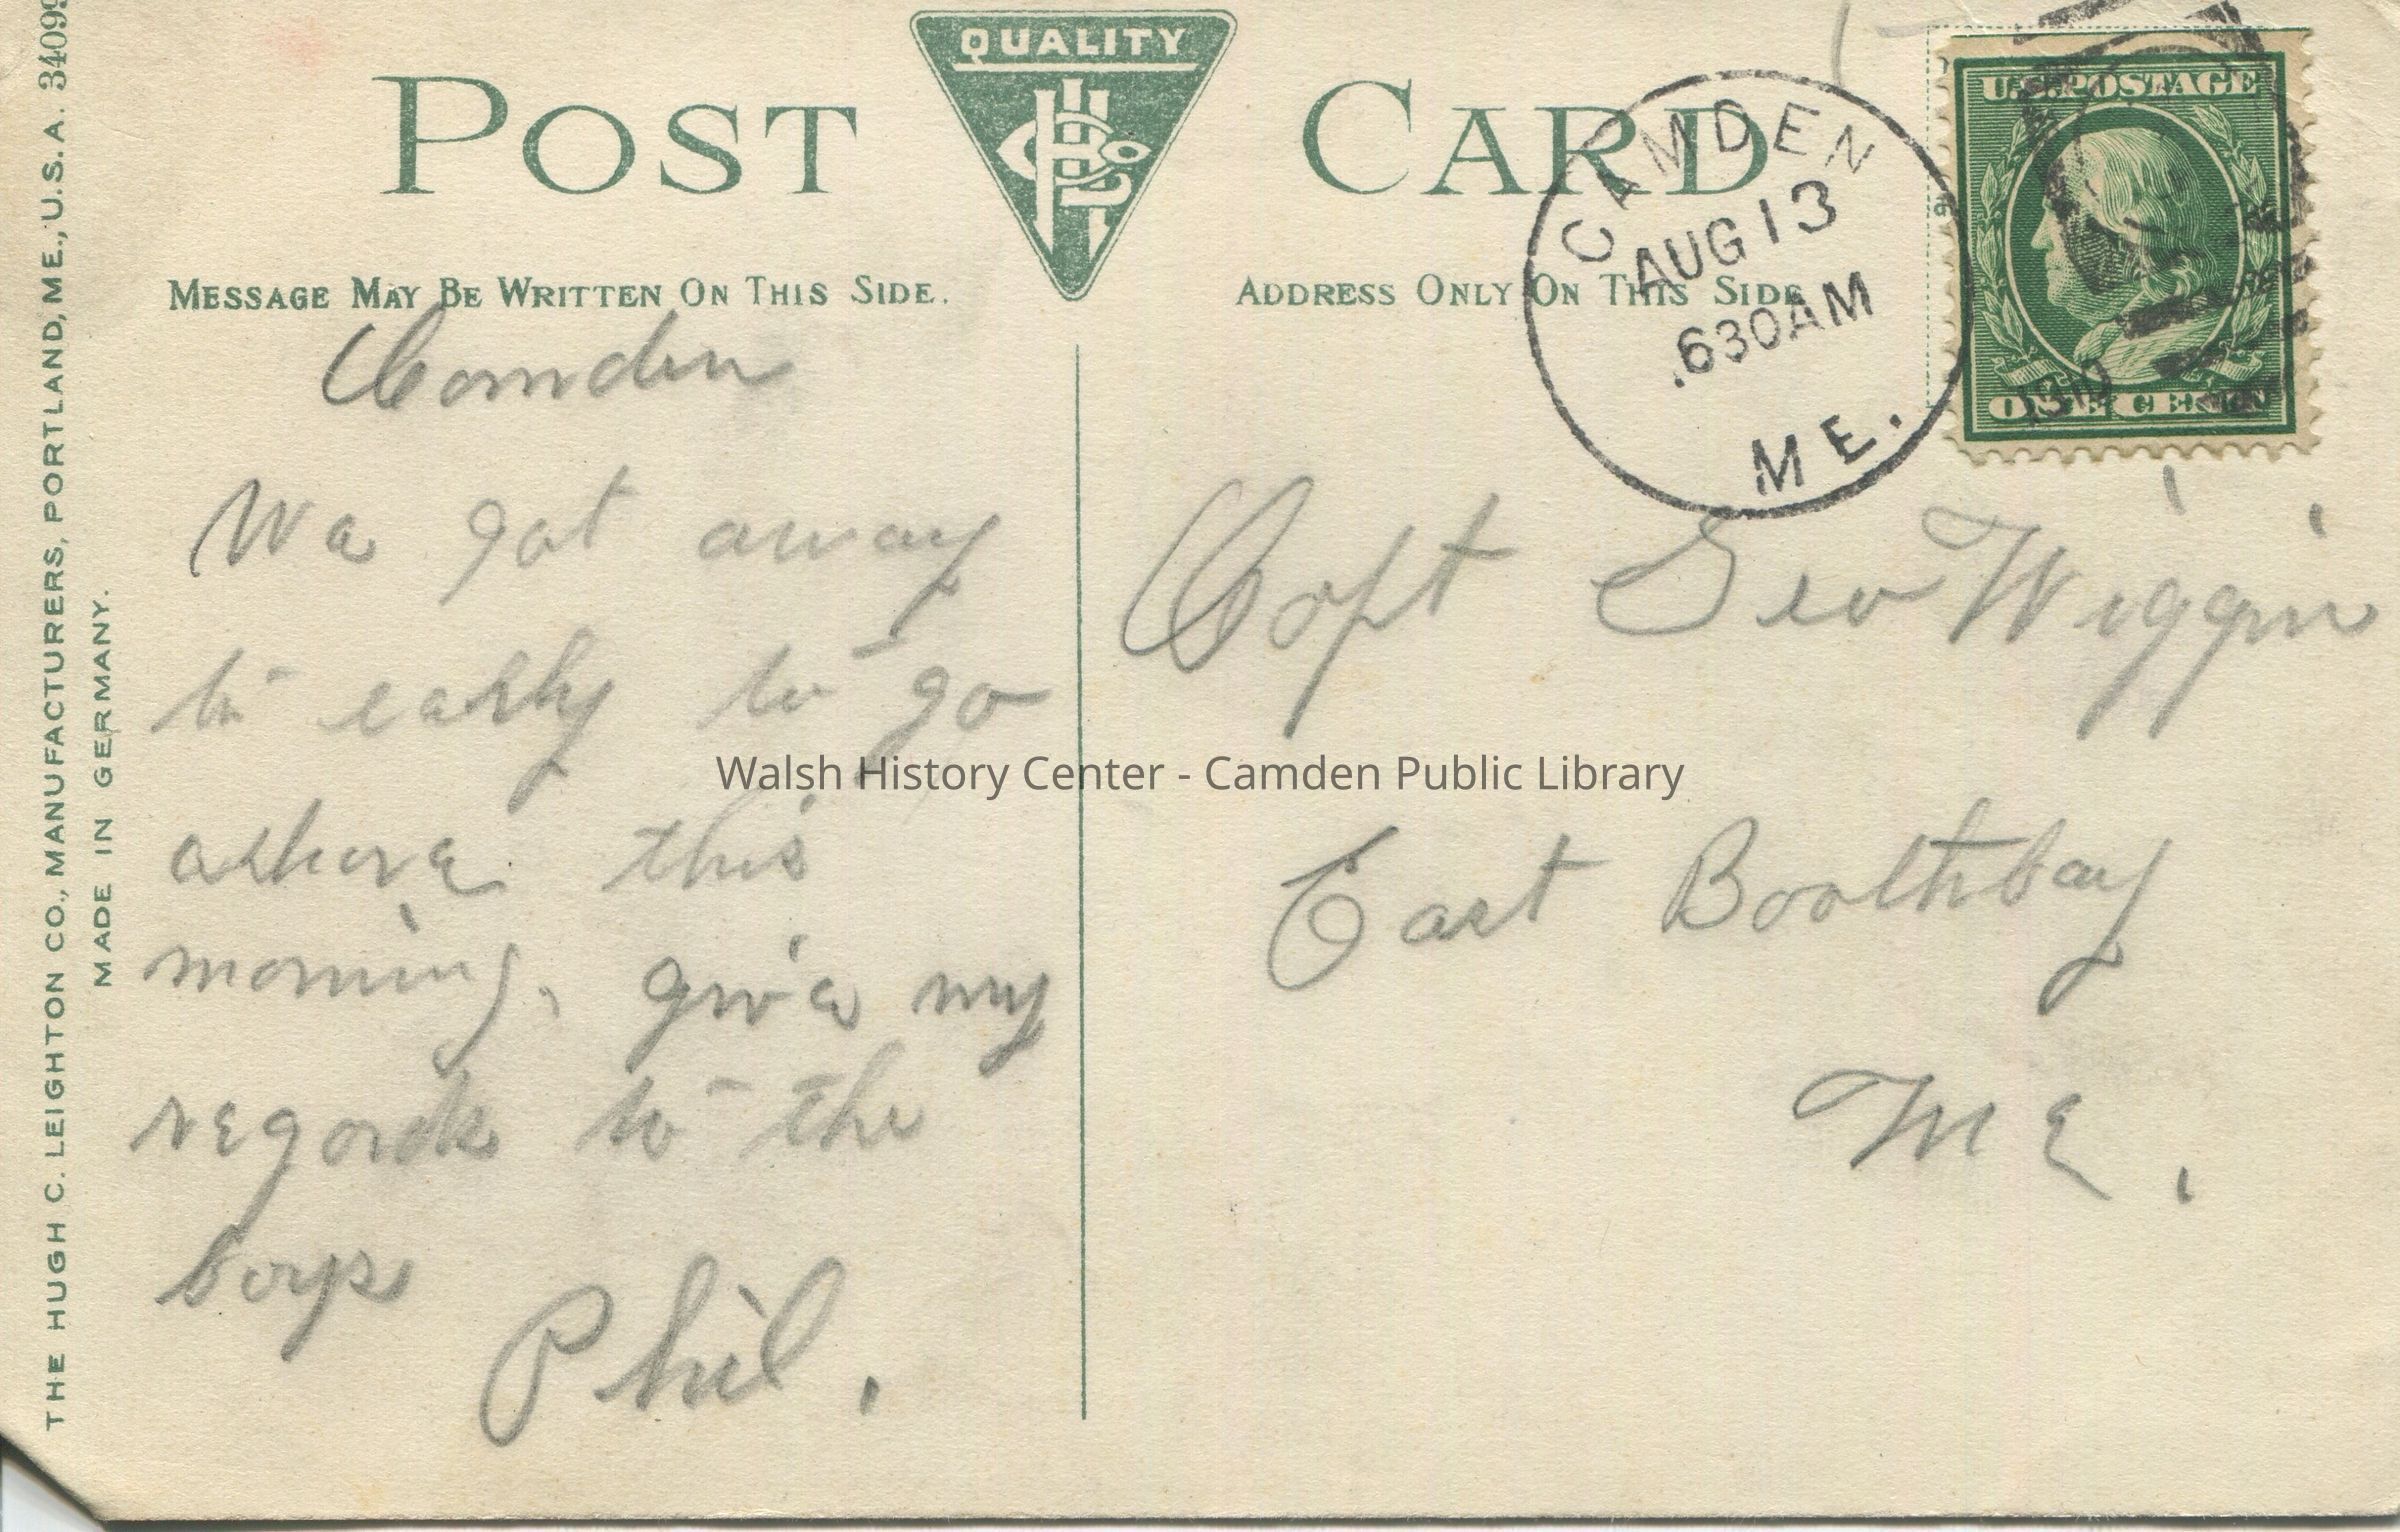 QUALITY
POST CARD
MESSAGE MAY BE WRITTEN ON THIS SIDE.
ADDRESS ONLY ON THIS SIDE
CAMDEN
AUG 13
630AM
ME.
U.S. POSTAGE
ONE CENT
1910
Camden
We got away
to early to go
ashore this
morning. give my
regards to the
boys
Phil.
Capt Geo Wiggin
East Boothbay
ME.
THE HUGH C. LEIGHTON CO., MANUFACTURERS, PORTLAND, ME., U.S.A. 34099
MADE IN GERMANY.
Walsh History Center - Camden Public Library